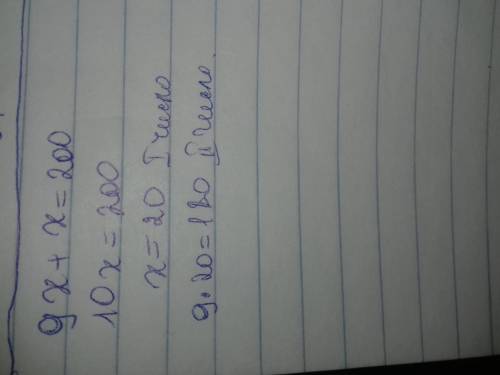 9x + x = 200
10x = 200
x = 20 I число
9 · 20 = 180 II число.